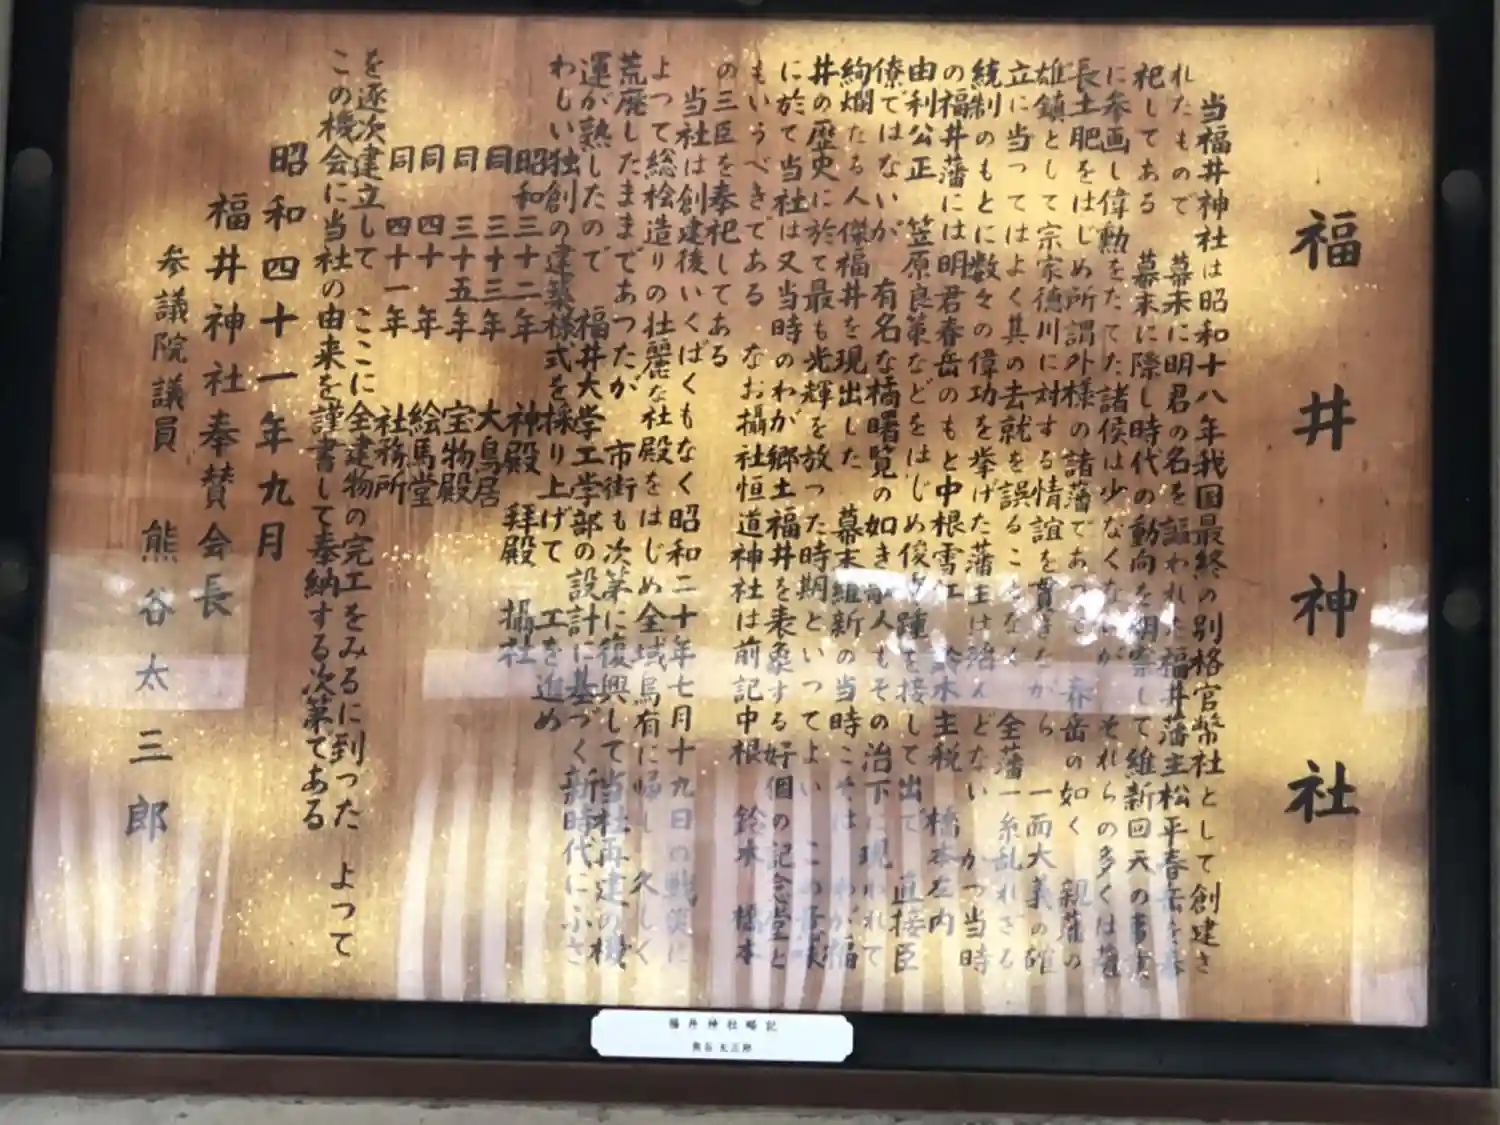 福井神社
当福井神社は昭和十八年我国最終の別格官幣社として創建さ
れたもので 幕末に明君の名を謳われた福井藩主松平春岳を奉
祀してある 幕末に際し時代の動向を明察して維新回天の
に参画し偉勲をたてた諸侯は少なくないが それらの多くは薩
長土肥をはじめ所謂外様の諸藩であつて 春岳の如く 親藩の
雄鎮として宗家徳川に対する情誼を貫きながら 一面大義の確
立に当つてはよく其の去就を誤ることなく 全藩一糸乱れざる
統制のもとに数々の偉功を挙げた藩主は殆んどない かつ当時
の福井藩には明君春岳のもと中根雪江 鈴木主税 橋本左内
由利公正 笠原良策などをはじめ俊 踵を接して出て 直接臣
僚ではないが 有名な橘曙覧の如き 人もその治下に現われて
絢爛たる人傑福井を現出した 幕末維新の当時こそは わが福
井の歴史に於て最も光輝を放つた時期といつてよい この意味
に於て当社は又当時のわが郷土福井を表象する好個の記念堂と
もいうべきである なお摂社恒道神社は前記中根 鈴木 橋本
の三臣を奉祀してある
当社は創建後いくばくもなく昭和二十年七月十九日の戦災に
よつて総桧造りの壮麗な社殿をはじめ全域烏有に帰し 久しく
荒廃したままであつたが 市街も次第に復興して当社再建の機
運が熟したので 福井大学工学部の設計に基づく新時代にふさ
わしい独創の建築様式を採り上げて 工を進め
昭和三十二年 神殿 拝殿 攝社
同 三十三年 大鳥居
同 三十五年 宝物殿
同 四十年 絵馬堂
同 四十一年 社務所
を逐次建立して ここに全建物の完工をみるに到つた よつて
この機会に当社の由来を謹書して奉納する次第である
昭和四十一年九月
福井神社奉賛会長
参議院議員 熊谷太三郎
福井神社略記
熊谷太三郎